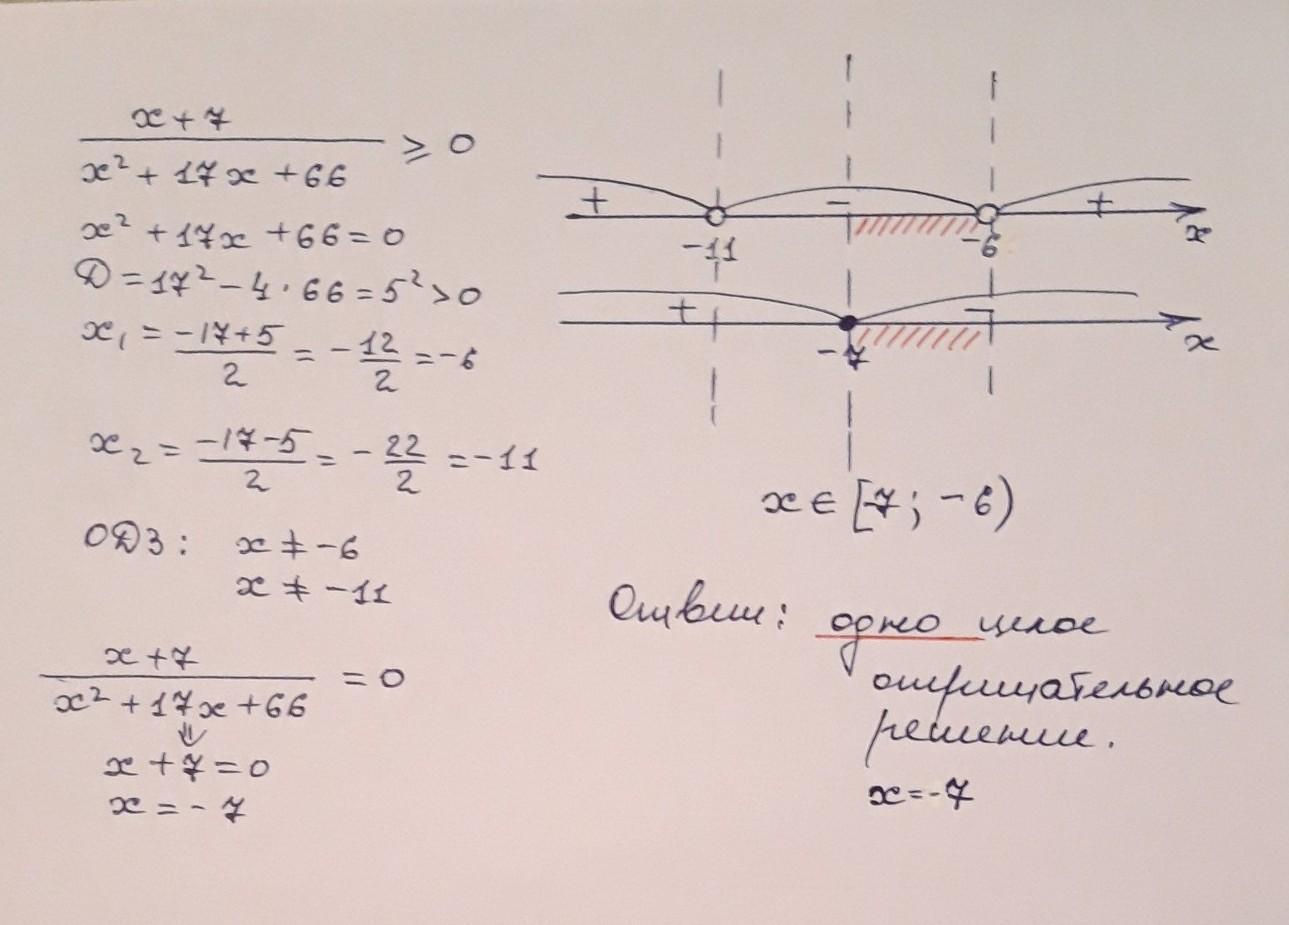 x + 7
x² + 17x + 66
≥ 0
x² + 17x + 66 = 0
D = 17² - 4 · 66 = 5² > 0
x₁ = -17+5 / 2 = - 12 / 2 = -6
x₂ = -17-5 / 2 = - 22 / 2 = -11
ОДЗ: x ≠ -6
x ≠ -11
x + 7
x² + 17x + 66
= 0
⇓
x + 7 = 0
x = - 7
+ - +
-11 -6 x
+ -
-7 x
x ∈ [-7; -6)
Ответ: одно целое
отрицательное
решение.
x = -7